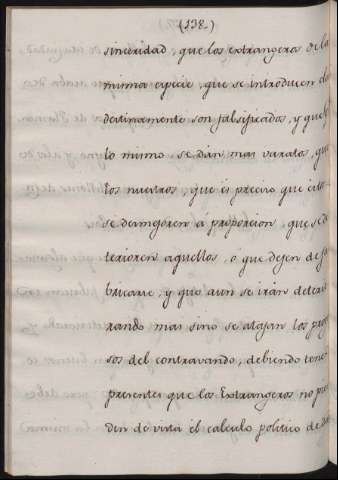 (138.)
sinceridad, que los extrangeros de la
misma especie, que se introducen clan
destinamente son falsificados, y que p.r
lo mismo se dán mas varatos, que
los nuestros, que és preciso que estos
se demejoren á proporcion, que se de
terioren aquellos, ó que dejen de fa
bricarse, y que aun se irán deterio
rando mas sino se atajan los progre
sos del contravando, debiendo tener
presentes que los Extrangeros no pier
den de vista él calculo politico de